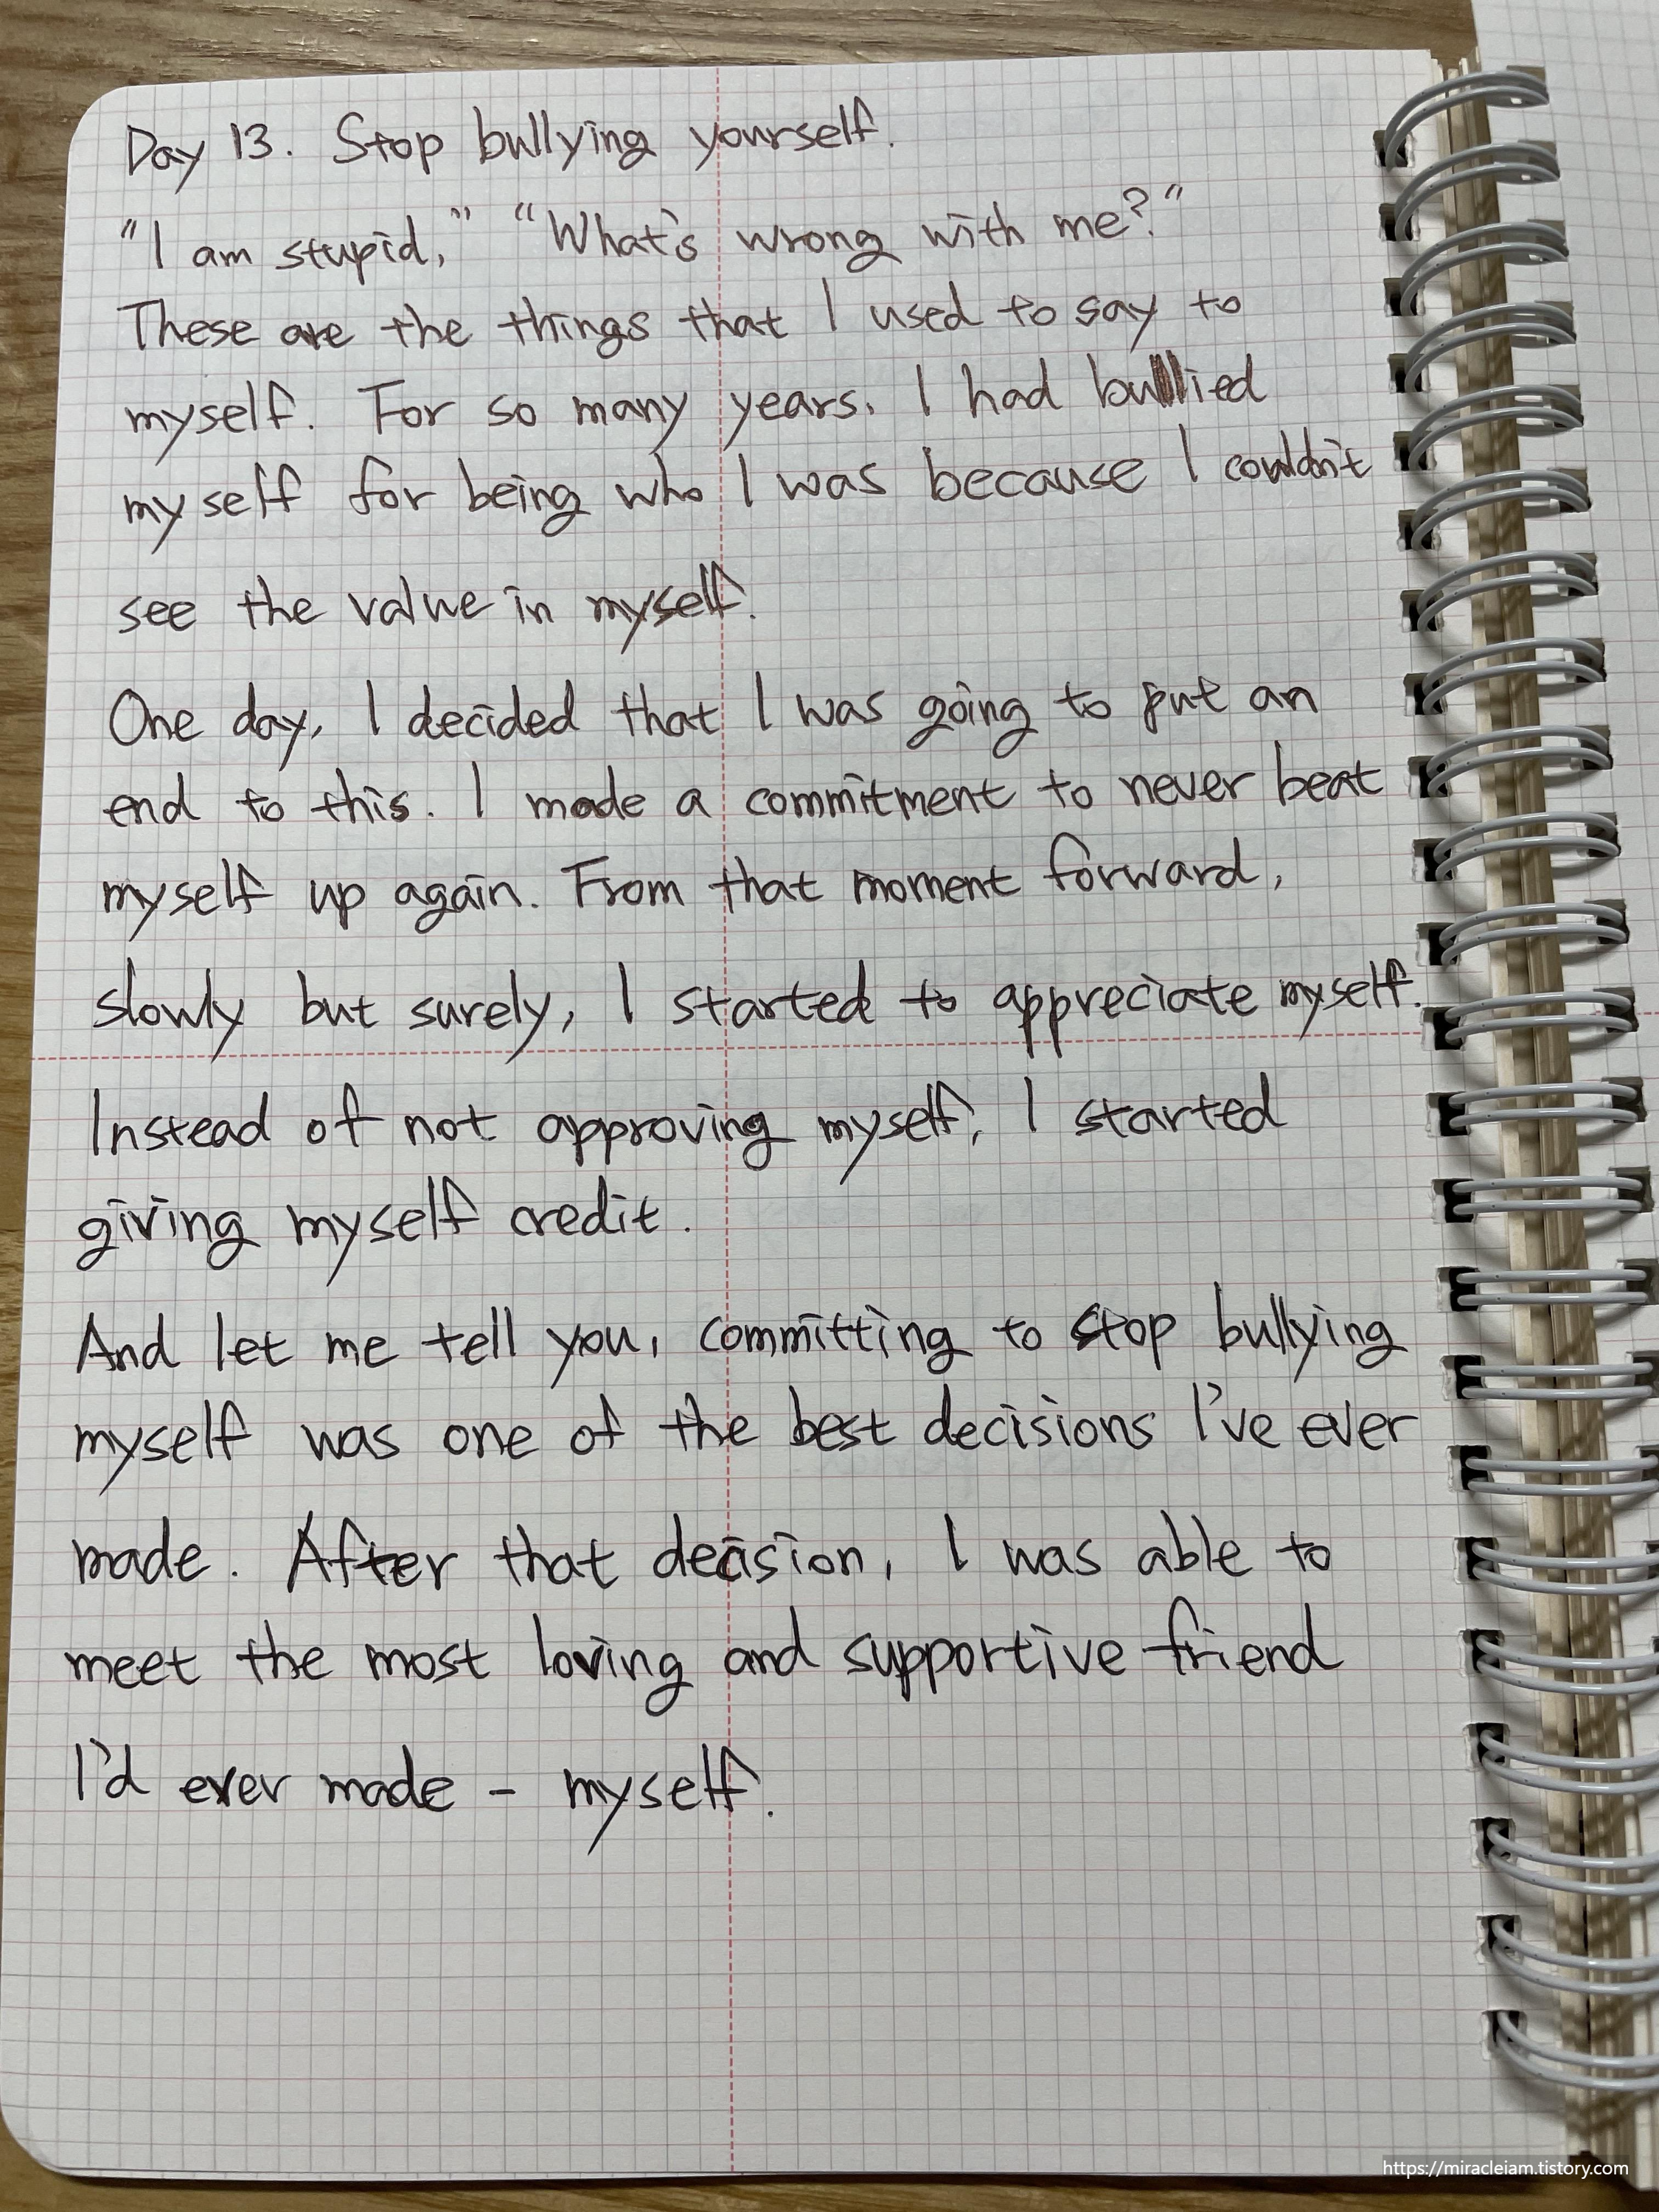 Day 13. Stop bullying yourself.
"I am stupid," "What's wrong with me?"
These are the things that I used to say to
myself. For so many years, I had bullied
myself for being who I was because I couldn't
see the value in myself.
One day, I decided that I was going to put an
end to this. I made a commitment to never beat
myself up again. From that moment forward,
slowly but surely, I started to appreciate myself.
Instead of not approving myself, I started
giving myself credit.
And let me tell you, committing to stop bullying
myself was one of the best decisions I've ever
made. After that decision, I was able to
meet the most loving and supportive friend
I'd ever made - myself.
https://miracleiam.tistory.com